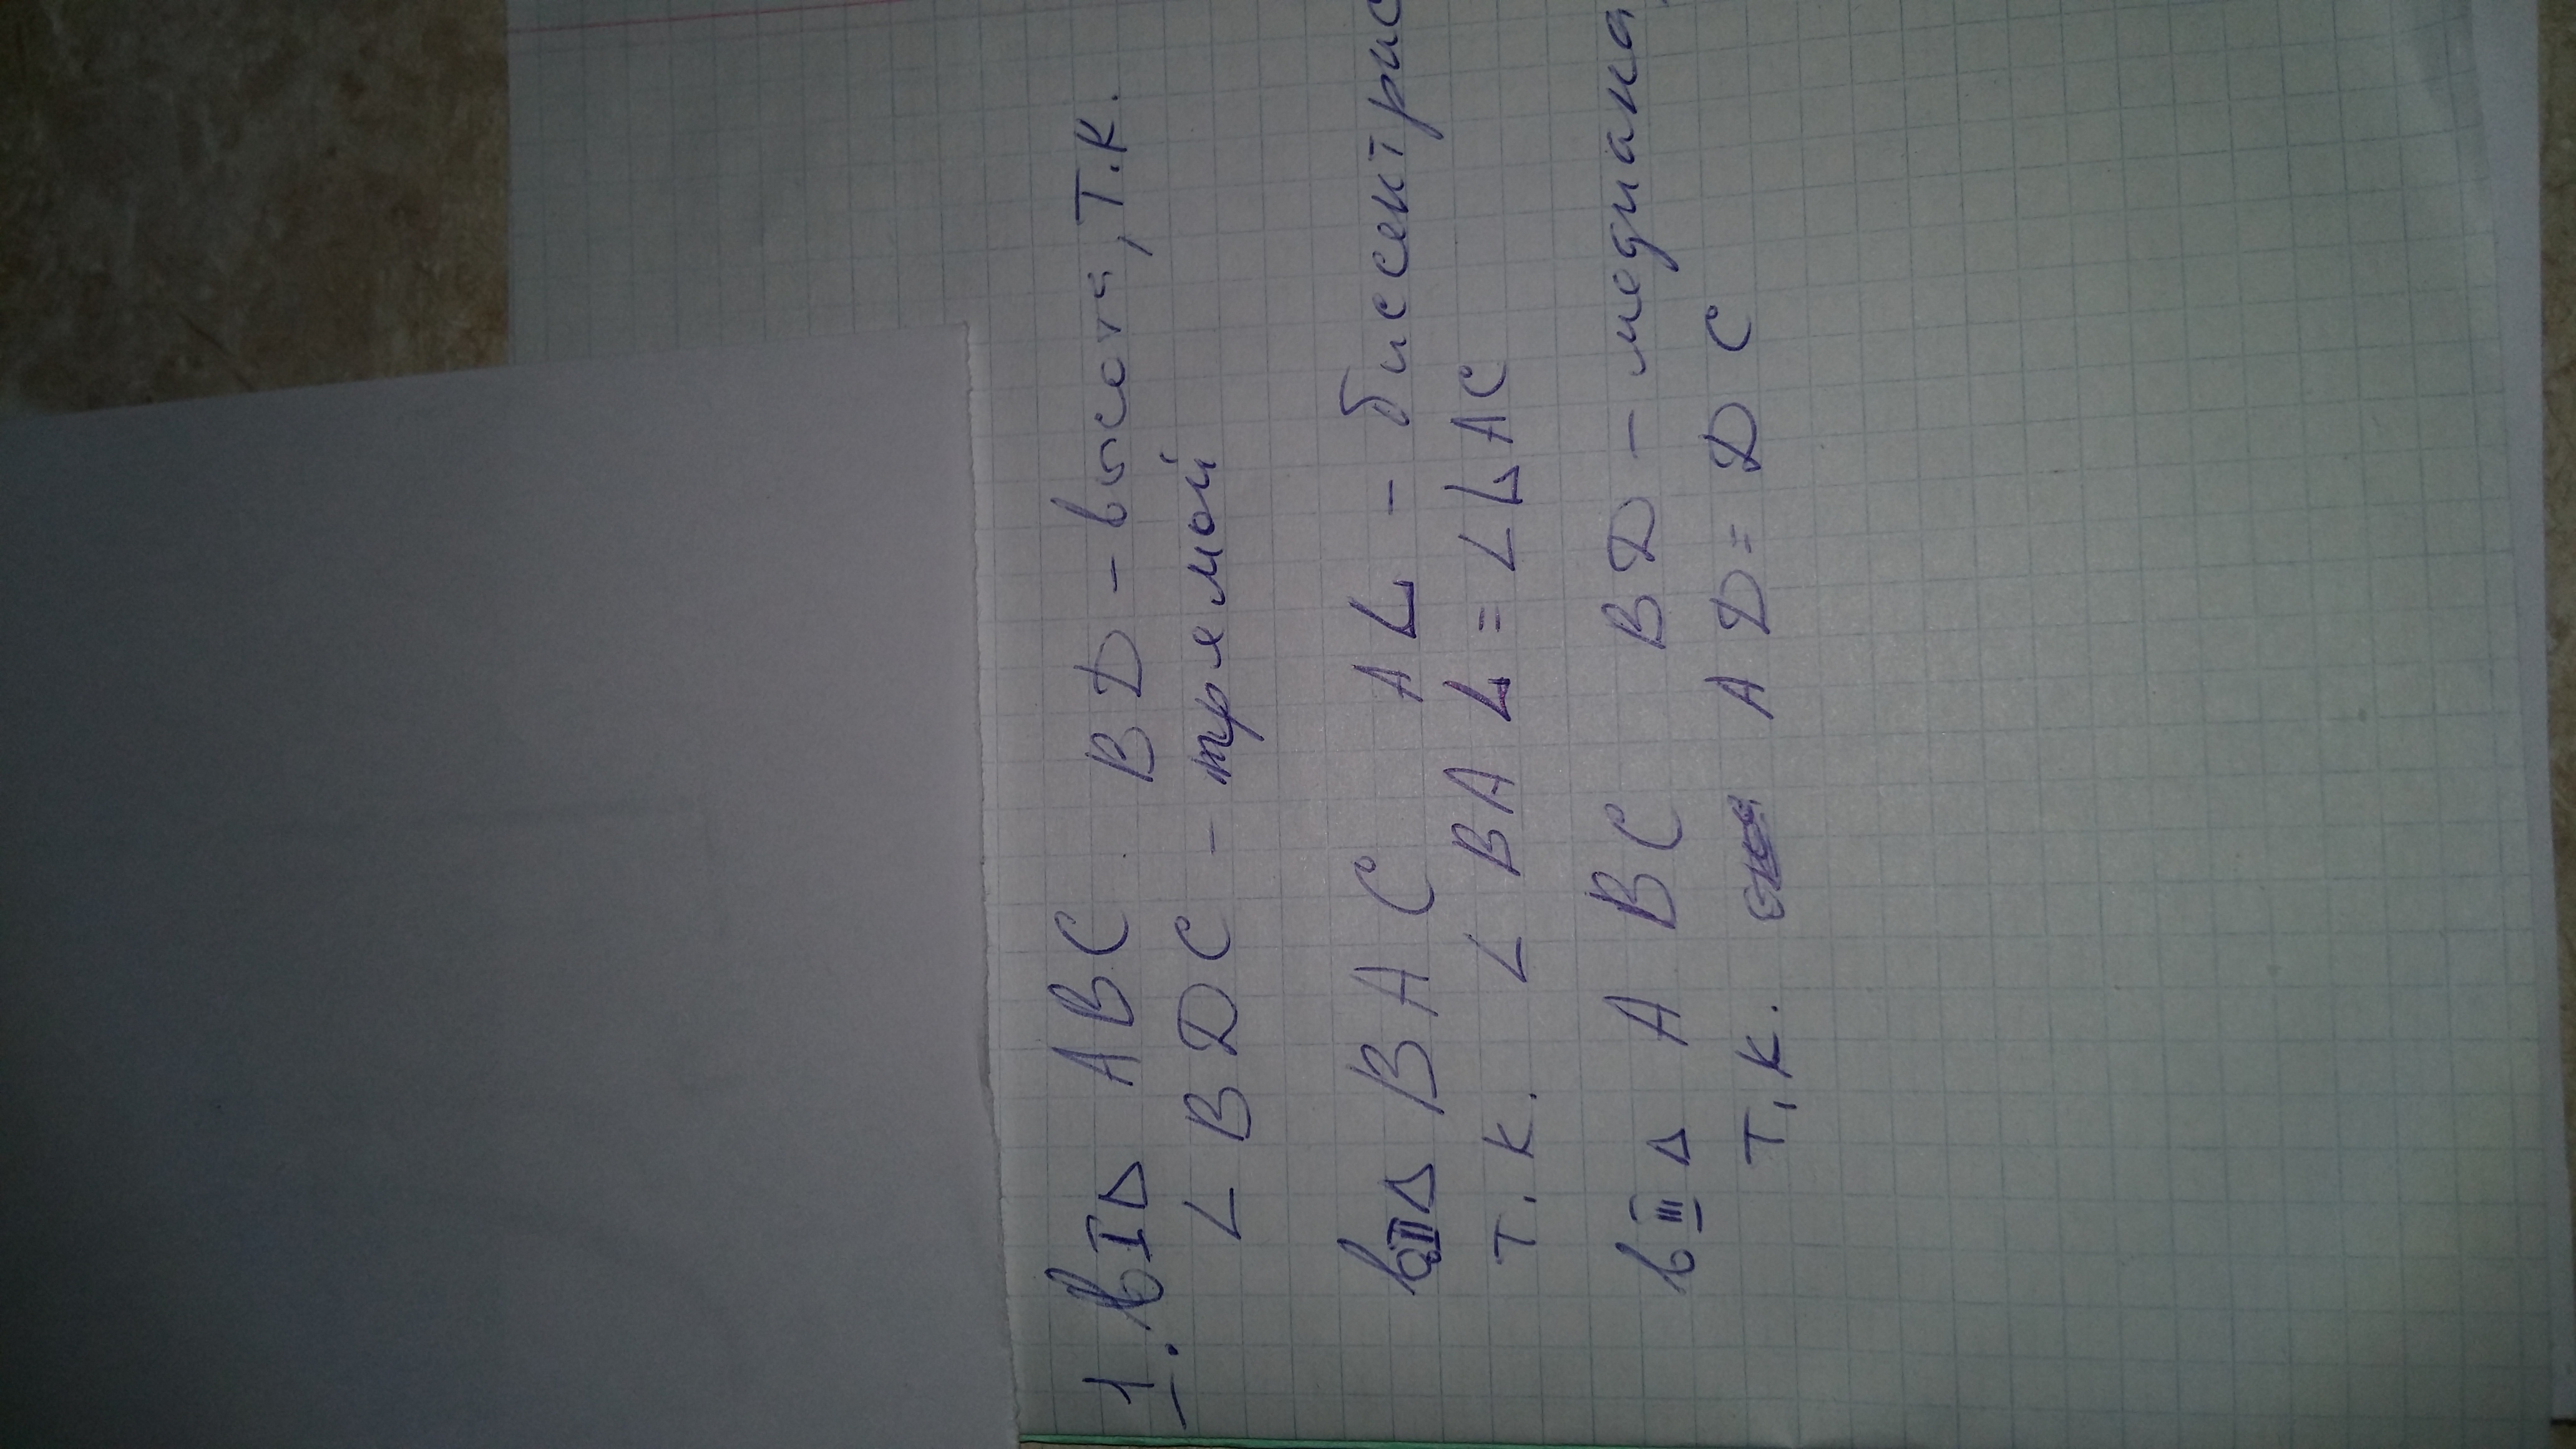 1. в I Δ ABC BD - высота, т.к.
∠ BDC - прямой
в II Δ BAC AL - биссектрис
т.к. ∠ BAL = ∠ LAC
в III Δ ABC BD - медиана,
т.к. AD = DC